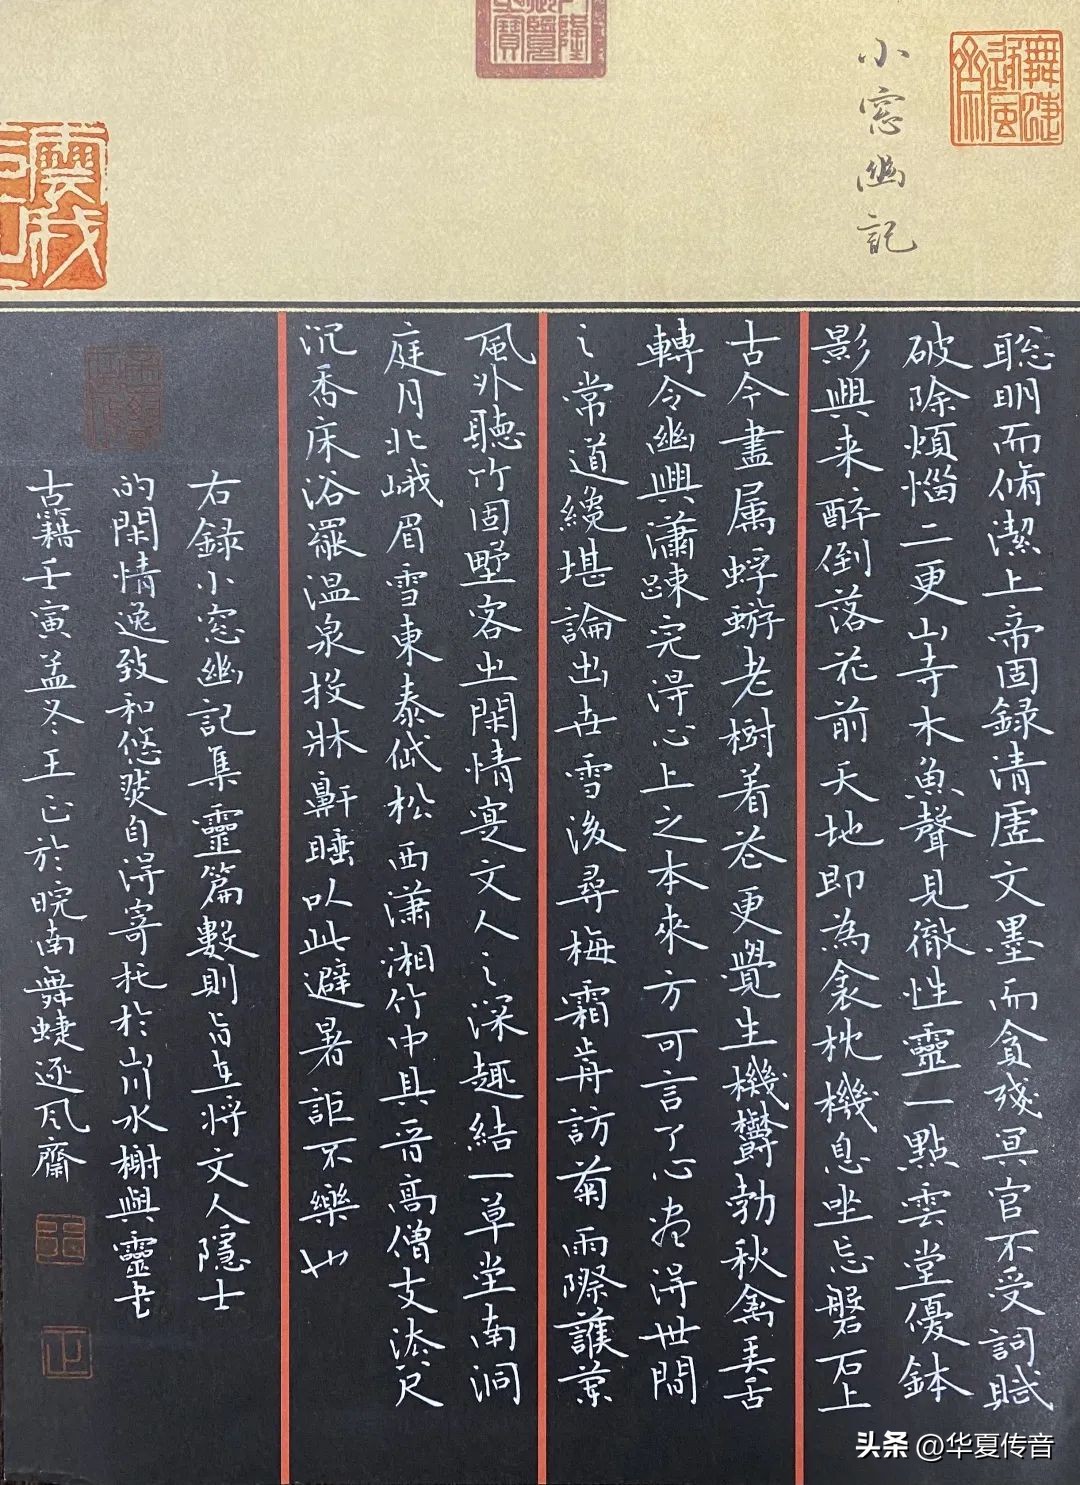 舞蜨逐風齋
小窓幽記
聡明而脩潔上帝固録清虛文墨而貪殘冥官不受詞賦
破除煩惱二更山寺木魚聲見徹性靈一點雲堂優鉢
影興来醉倒落花前天地即為衾枕機息坐忘磐石上
古今盡属蜉蝣老樹着花更覺生機欝勃秋禽弄舌
轉令幽興瀟踈完得心上之本來方可言了心盡得世間
之常道纔堪論出世雪後尋梅霜前訪菊雨際護蘭
風外聽竹固墅客之閑情寔文人之深趣結一草堂南洞
庭月北峨眉雪東泰岱松西瀟湘竹中具晋高僧支法八尺
沉香床浴罷温泉投牀鼾睡以此避暑詎不樂也
右録小窓幽記集靈篇數則旨在将文人隱士
的閑情逸致和悠然自得寄托於山川水榭與靈書
古籍壬寅孟冬王正於晥南舞蜨逐風齋
王
正
头条 @华夏传音